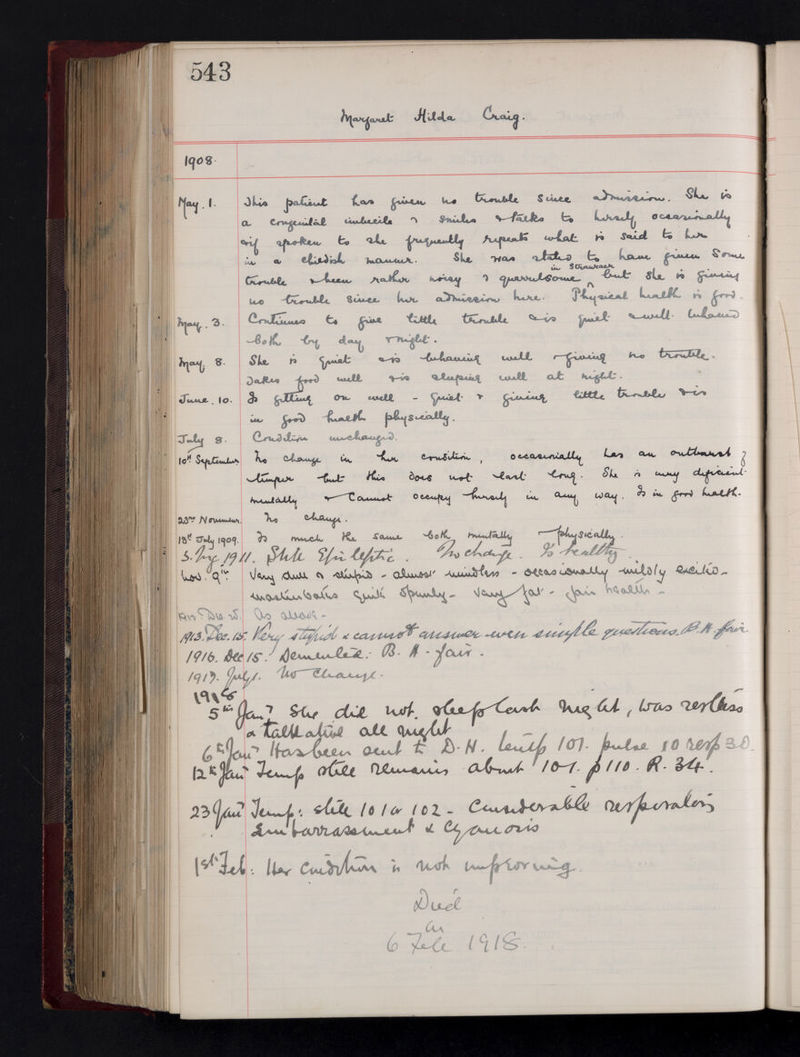 543
Margaret Hilda Craig.
1908.
May. 1. This patient has given no trouble since admission. She is
a congenital imbecile & smiles & talks to herself occasionally
& if spoken to she frequently repeats what is said to her
in a childish manner. She was stated to have given some
trouble & been rather noisy & quarrelsome in Stranraer but she is giving
no trouble since her admission here. Physical health is good.
May. 3. Continues to give little trouble & is quiet & well behaved
both by day & night.
May 8. She is quiet & is behaving well & giving no trouble.
Takes food well & is sleeping well at night.
June. 10. Is getting on well - quiet & giving little trouble & is
in good health physically.
July 8. Condition unchanged.
10th September No change in her condition, occasionally has an outburst of
temper but this does not last long. She is very deficient
mentally & cannot occupy herself in any way. Is in good health.
23rd November. No change.
13th July 1909. Is much the same both mentally & physically.
3. Aug. 1911. State Epileptic. No change. Is healthy.
Nov. 9th. Very dull & stupid - almost mindless - occasionally mildly excited -
masturbates quite openly - very fat - fair health -
As above -
1913. Dec. 15. Very stupid & cannot answer even simple questions. B.H. fair
1916. Dec 15. Demented. B.H - fair.
1917. July 1. No change.
1918
5th Jany She did not sleep last night, was restless
& talkative all night
6th Jany Has been sent to D.H. temp 101. pulse resp 30
12th Jany Temp still remains about 101. p 110. R. 34.
23 Jany Temp: still 101 or 102 - Considerable respiratory
Embarrassment & Cyanosis
1st Feb: Her condition is not improving.
Died
on
6 Feb 1918.